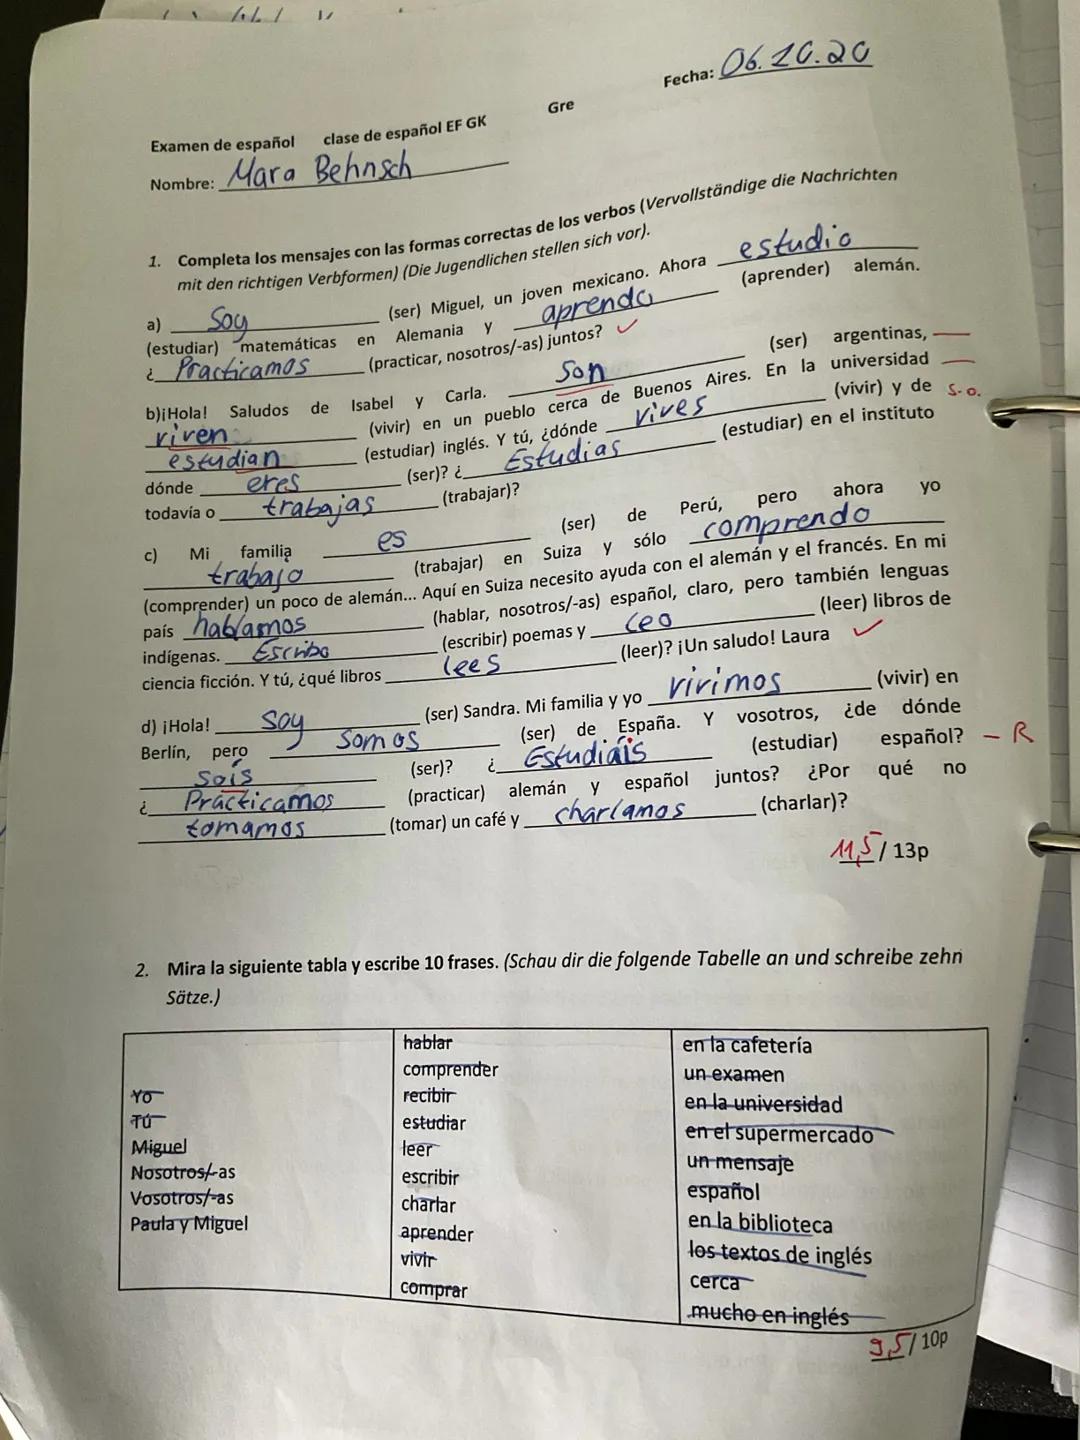 Fecha: 06.10.20
Examen de español clase de español EF GK Gre
Nombre: Mara Behnsch
1. Completa los mensajes con las formas correctas de los verbos (Vervollständige die Nachrichten
mit den richtigen Verbformen) (Die Jugendlichen stellen sich vor).
a) Soy (ser) Miguel, un joven mexicano. Ahora estudio
(estudiar) matemáticas en Alemania y aprendo (aprender) alemán.
¿ Practicamos (practicar, nosotros/-as) juntos? ✓
b)¡Hola! Saludos de Isabel y Carla. Son (ser) argentinas,
viven (vivir) en un pueblo cerca de Buenos Aires. En la universidad
estudian (estudiar) inglés. Y tú, ¿dónde vives (vivir) y de s.o.
dónde eres (ser)? ¿ Estudias (estudiar) en el instituto
todavía o trabajas (trabajar)?
c) Mi familia es (ser) de Perú, pero ahora yo
trabajo (trabajar) en Suiza y sólo comprendo
(comprender) un poco de alemán... Aquí en Suiza necesito ayuda con el alemán y el francés. En mi
país hablamos (hablar, nosotros/-as) español, claro, pero también lenguas
indígenas. Escribo (escribir) poemas y leo (leer) libros de
ciencia ficción. Y tú, ¿qué libros lees (leer)? ¡Un saludo! Laura ✓
d) ¡Hola! Soy (ser) Sandra. Mi familia y yo vivimos (vivir) en
Berlín, pero somos (ser) de España. Y vosotros, ¿de dónde
sois (ser)? ¿ Estudiáis (estudiar) español? – R
¿ Prácticamos (practicar) alemán y español juntos? ¿Por qué no
tomamos (tomar) un café y charlamos (charlar)?
11,5 / 13p
2. Mira la siguiente tabla y escribe 10 frases. (Schau dir die folgende Tabelle an und schreibe zehn
Sätze.)
Yo
Tú
Miguel
Nosotros/-as
Vosotros/-as
Paula y Miguel
hablar
comprender
recibir
estudiar
leer
escribir
charlar
aprender
vivir
comprar
en la cafetería
un examen
en la universidad
en el supermercado
un mensaje
español
en la biblioteca
los textos de inglés
cerca
mucho en inglés
9,5 / 10p